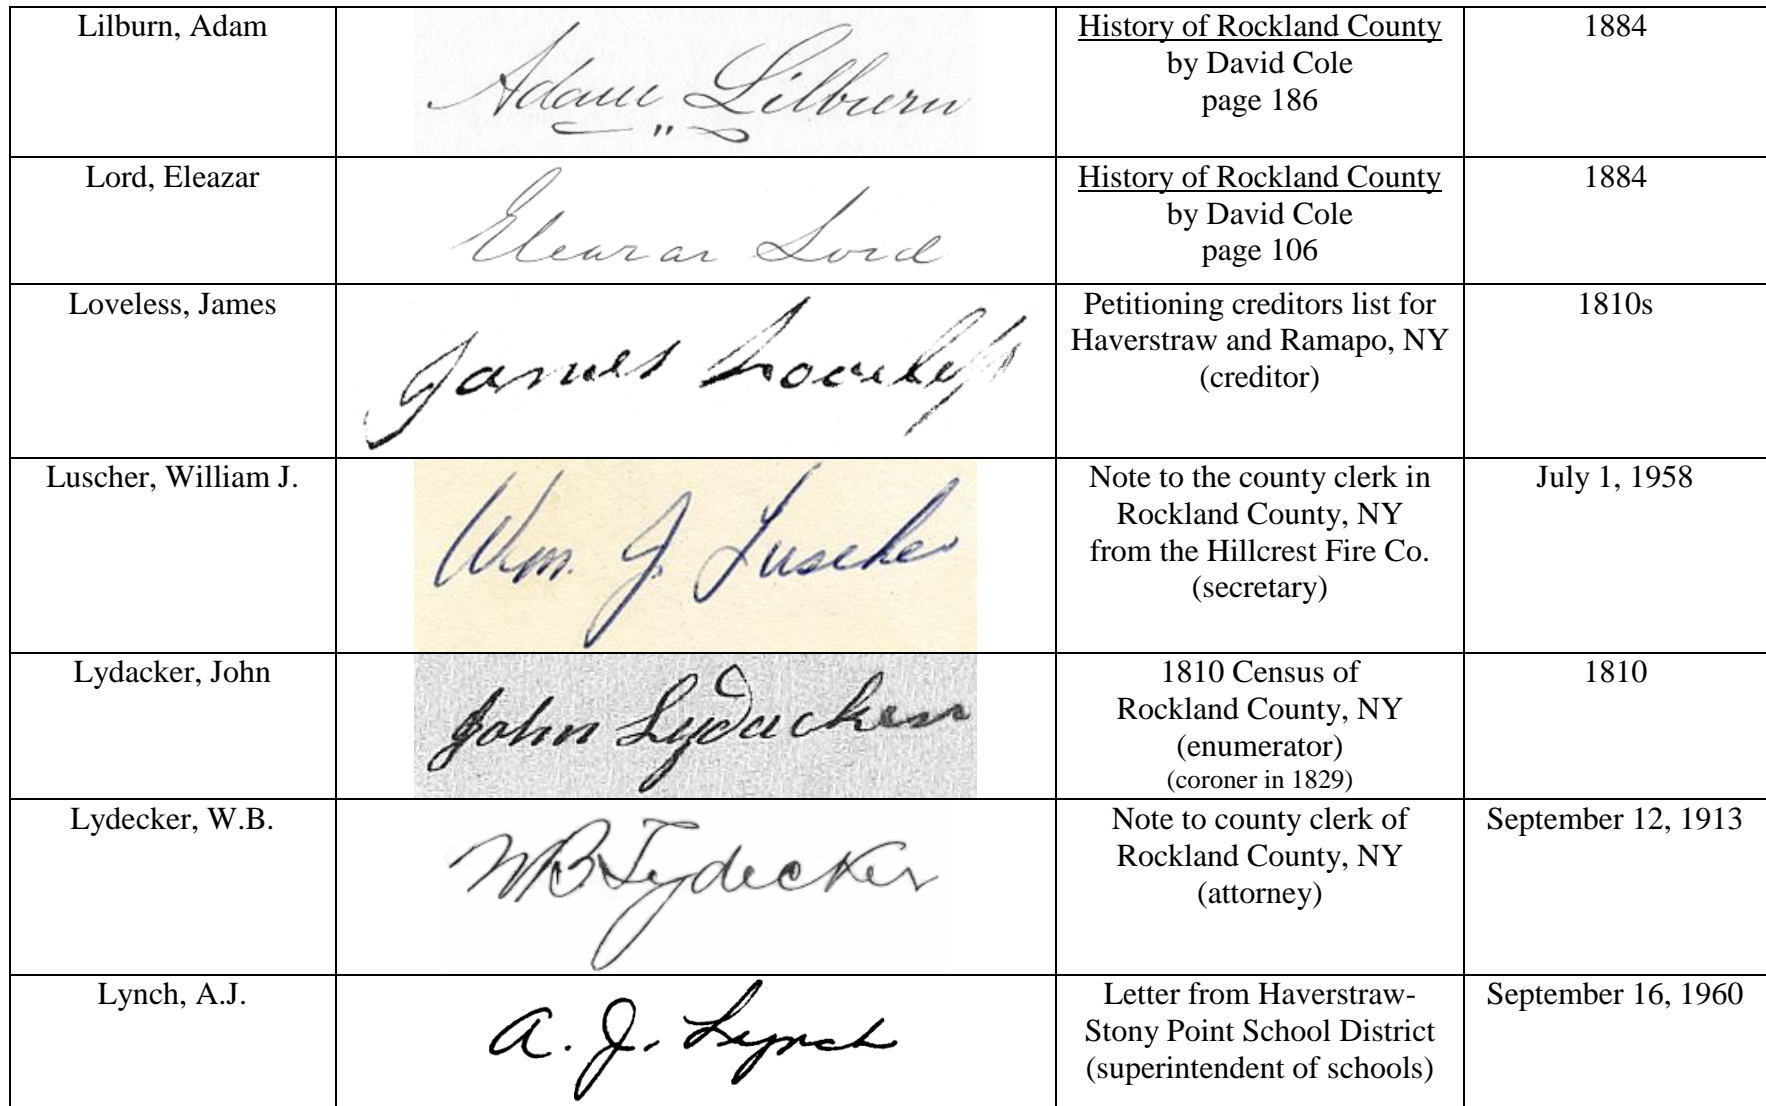 Lilburn, Adam
Adam Lilburn
History of Rockland County
by David Cole
page 186
1884
Lord, Eleazar
Eleazar Lord
History of Rockland County
by David Cole
page 106
1884
Loveless, James
James Loveless
Petitioning creditors list for
Haverstraw and Ramapo, NY
(creditor)
1810s
Luscher, William J.
Wm. J. Luscher
Note to the county clerk in
Rockland County, NY
from the Hillcrest Fire Co.
(secretary)
July 1, 1958
Lydacker, John
John Lydacker
1810 Census of
Rockland County, NY
(enumerator)
(coroner in 1829)
1810
Lydecker, W.B.
WB Lydecker
Note to county clerk of
Rockland County, NY
(attorney)
September 12, 1913
Lynch, A.J.
A. J. Lynch
Letter from Haverstraw-
Stony Point School District
(superintendent of schools)
September 16, 1960